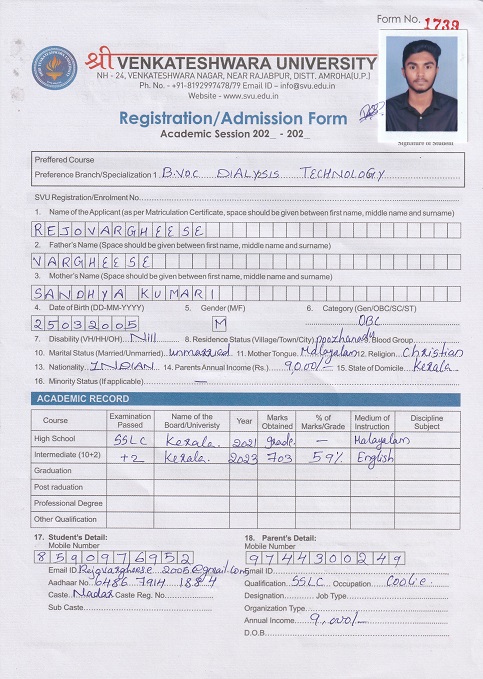 Form No. 1739
श्री VENKATESHWARA UNIVERSITY
NH - 24, VENKATESHWARA NAGAR, NEAR RAJABPUR, DISTT. AMROHA(U.P.)
Ph. No. - +91-8192997478/79 Email ID – info@svu.edu.in
Website - www.svu.edu.in
Registration/Admission Form
Academic Session 202_ - 202_
Signature of Student
Preffered Course
Preference Branch/Specialization 1 B.voc DIALYSIS TECHNOLOGY
SVU Registration/Enrolment No.
1. Name of the Applicant (as per Matriculation Certificate, space should be given between first name, middle name and surname)
REJOVARGHEESE
2. Father's Name (Space should be given between first name, middle name and surname)
VARGHEESE
3. Mother's Name (Space should be given between first name, middle name and surname)
SANDHYA KUMARI
4. Date of Birth (DD-MM-YYYY) 5. Gender (M/F) 6. Category (Gen/OBC/SC/ST)
25032005 M OBC
7. Disability (VH/HH/OH) Nill 8. Residence Status (Village/Town/City) 9. Blood Group
10. Marital Status (Married/Unmarried) unmarried 11. Mother Tongue Malayalam 12. Religion Christian
13. Nationality INDIAN 14. Parents Annual Income (Rs.) 9,000/- 15. State of Domicile Kerala
16. Minority Status (If applicable) —
ACADEMIC RECORD
Course Examination Passed Name of the Board/Univeristy Year Marks Obtained % of Marks/Grade Medium of Instruction Discipline Subject
High School SSLC Kerala 2021 grade — Malayalam
Intermediate (10+2) +2 Kerala 2023 703 59% English
Graduation
Post raduation
Professional Degree
Other Qualification
17. Student's Detail: 18. Parent's Detail:
Mobile Number Mobile Number
8590976952 9744300249
Email ID Rejovargheese2005@gmail.com Email ID
Aadhar No 6486 7914 1884 Qualification SSLC Occupation Coolie
Caste Nadar Caste Reg. No. Designation Job Type
Sub Caste Organization Type
Annual Income 9,000/-
D.O.B.